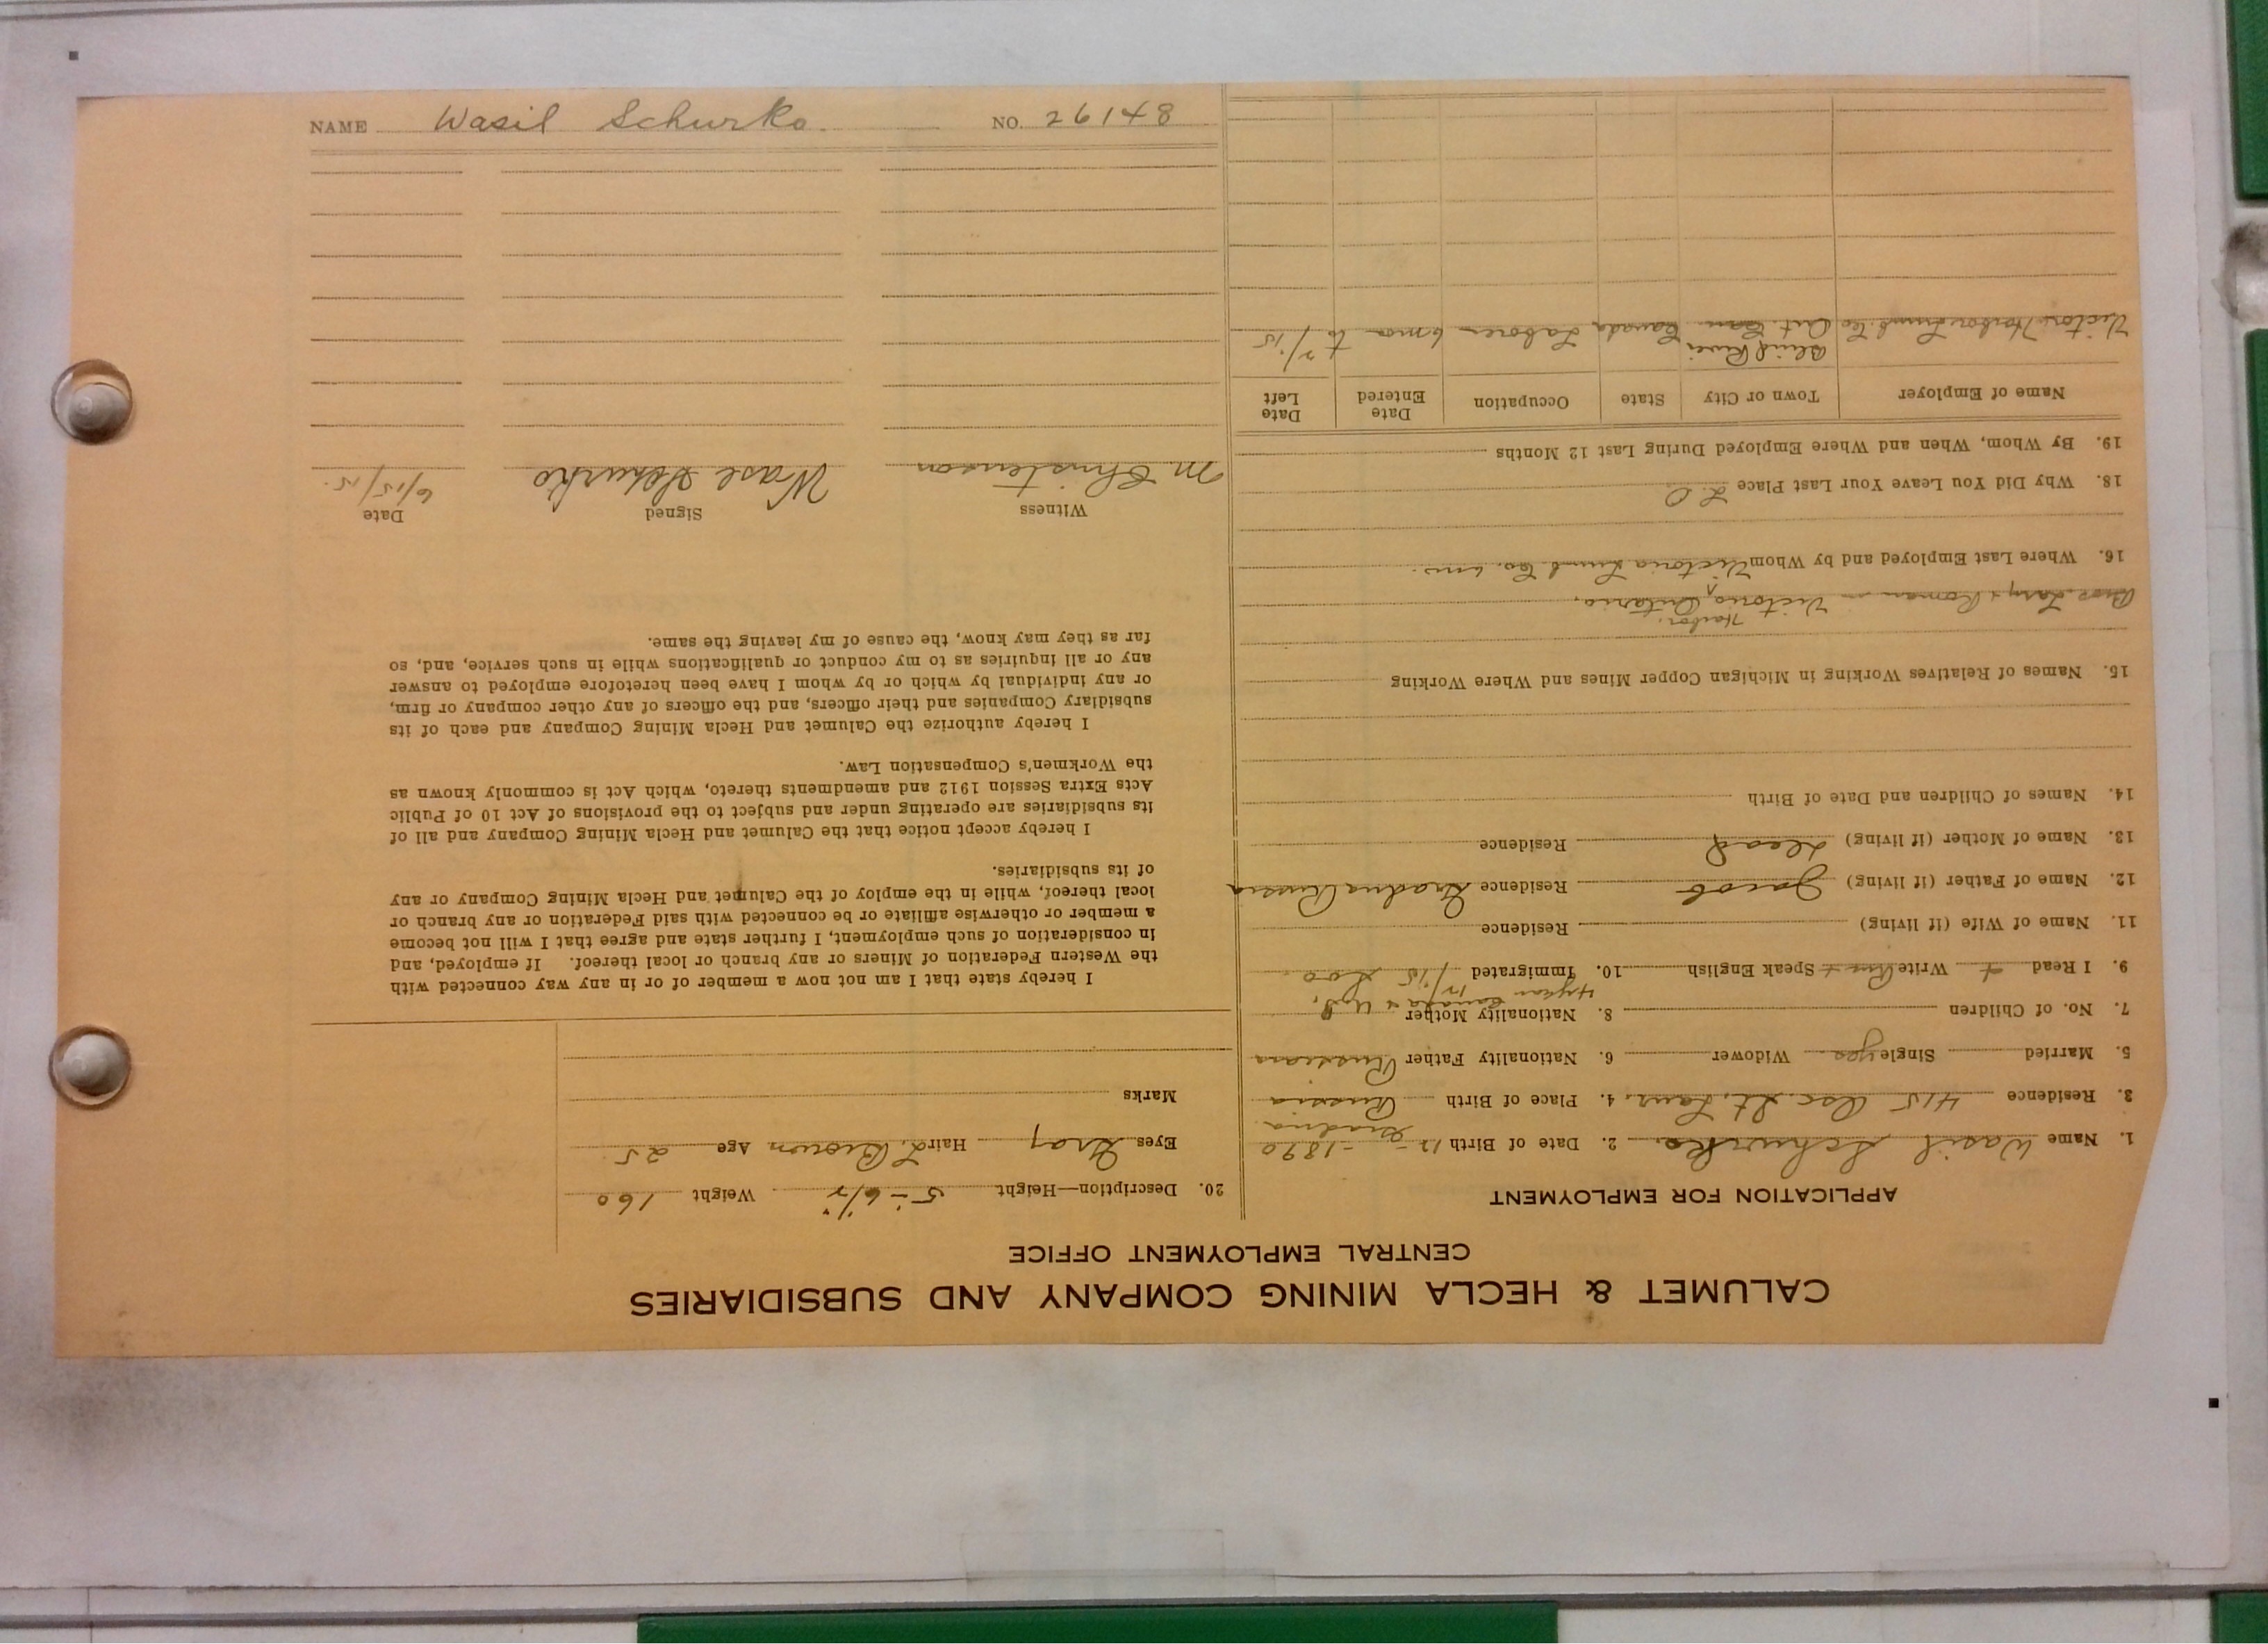 CALUMET & HECLA MINING COMPANY AND SUBSIDIARIES
CENTRAL EMPLOYMENT OFFICE
APPLICATION FOR EMPLOYMENT
1. Name Wasil Schurko. 2. Date of Birth 12 - - 1890
3. Residence 415 Osc. St. Laur. 4. Place of Birth Gradna Russia
5. Married Single yes Widower 6. Nationality Father Russian
7. No. of Children 8. Nationality Mother
4 year Canada & U.S.
9. I Read + Write Rus + Speak English 10. Immigrated
11. Name of Wife (if living) Residence
12. Name of Father (if living) Jacob Residence Gradna Russia
13. Name of Mother (if living) Dead Residence
14. Names of Children and Date of Birth
15. Names of Relatives Working in Michigan Copper Mines and Where Working
Harbor,
Roman in Victoria Ontario.
16. Where Last Employed and by Whom Victoria Lumb. Co.
18. Why Did You Leave Your Last Place L.O
19. By Whom, When and Where Employed During Last 12 Months
Name of Employer Town or City State Occupation Date Entered Date Left
Blind River
Victori Harbor Lumb. Co Ont. Can Canada Laborer 6 mo to
20. Description—Height 5-6 1/2" Weight 160
Eyes Gray Hair L. Brown Age 25
Marks
I hereby state that I am not now a member of or in any way connected with
the Western Federation of Miners or any branch or local thereof. If employed, and
in consideration of such employment, I further state and agree that I will not become
a member or otherwise affiliate or be connected with said Federation or any branch or
local thereof, while in the employ of the Calumet and Hecla Mining Company or any
of its subsidiaries.
I hereby accept notice that the Calumet and Hecla Mining Company and all of
its subsidiaries are operating under and subject to the provisions of Act 10 of Public
Acts Extra Session 1912 and amendments thereto, which Act is commonly known as
the Workmen's Compensation Law.
I hereby authorize the Calumet and Hecla Mining Company and each of its
subsidiary Companies and their officers, and the officers of any other company or firm,
or any individual by which or by whom I have been heretofore employed to answer
any or all inquiries as to my conduct or qualifications while in such service, and, so
far as they may know, the cause of my leaving the same.
Witness Signed Date
M Christenson Wasl Schurko 6/15/15.
NAME Wasil Schurko. NO. 26148